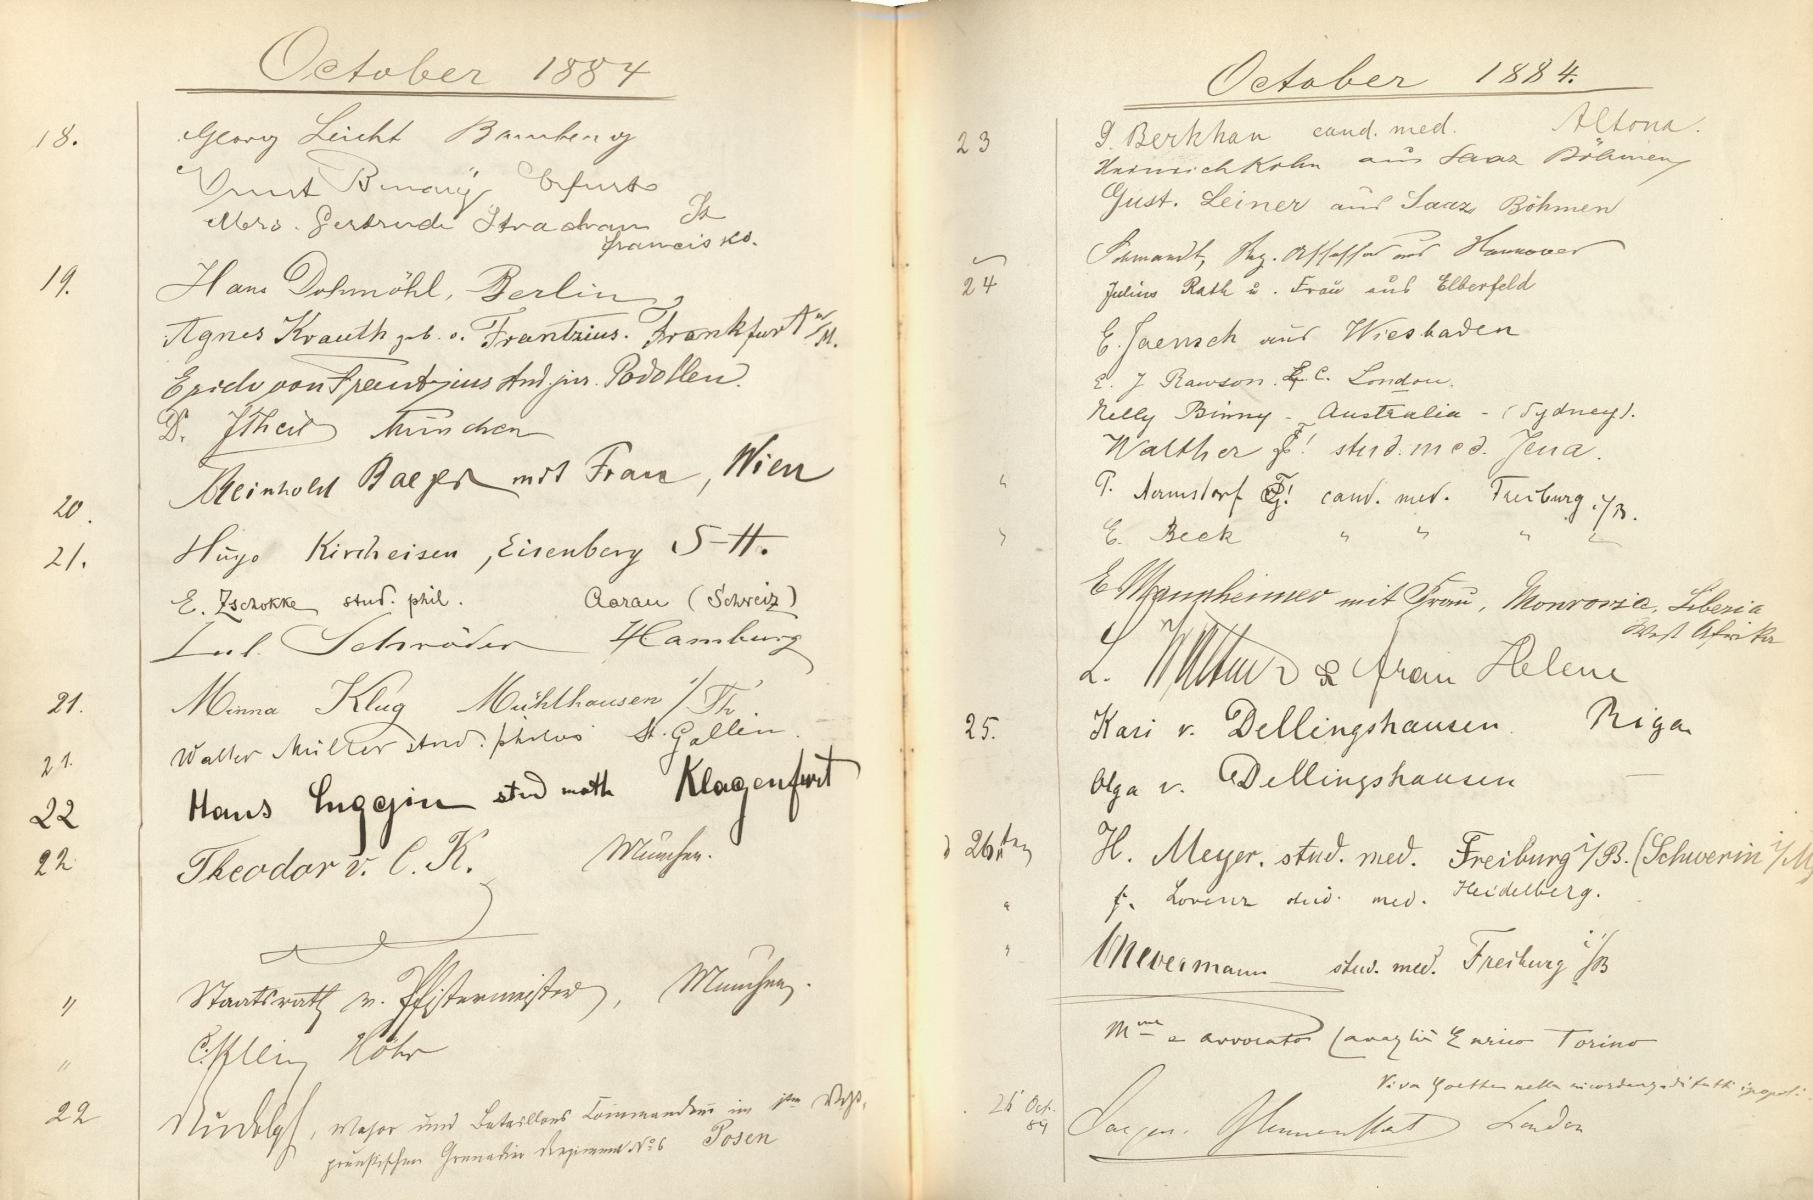 October 1884
18. Georg Leicht Bamberg
Ernst Benary Erfurt
Mrs. Gertrude Strachan St
Francisko.
19. Hans Dohmöhl, Berlin
Agnes Krauth geb. v. Frantzius. Frankfurt a/M.
Erich von Frantzius stud. jur. Podollen.
Dr. München
20. Reinhold mit Frau, Wien
21. Hugo Kircheisen, Eisenberg S-A.
E. Zschokke stud. phil. Aarau (Schweiz)
Lul. Schröder Hamburg
21. Minna Klug Mühlhausen i/Th.
21. Walter Müller stud. philos St. Gallen.
22 Hans Luggin stud math Klagenfurt
22 Theodor v. C. K. München.
" Staatsrath v. Pfistermeister, München.
"
22 Rudolph, Major und Bataillons Commandeur im 1ten
preußischen Grenadier Regiment No 6 Posen
October 1884.
23 Berkhan cand. med. Altona.
Heinrich Kohn aus Saaz Böhmen
Gust. Leiner aus Saaz Böhmen
Schmandt, Reg. Assessor aus Hannover
24 Julius Rath u. Frau aus Elberfeld
E. Jaensch aus Wiesbaden
E. J. Rawson. E. C. London.
Nelly Binny - Australia - (Sydney).
Walther stud. med. Jena.
" cand. med. Freiburg i/B.
" E. Beck " " " "
E Mannheimer mit Frau, Monrovia, Liberia
West Afrika
L. & Frau Helene
25. Kari v. Dellingshausen. Riga
Olga v. Dellingshausen —
26ten H. Meyer. stud. med. Freiburg i/B. (Schwerin i/M)
" F. Lorenz stud. med. Heidelberg.
" Mevermann stud. med. Freiburg i/B
Mme e avvocato Cavaglià Enrico Torino
Viva Goethe nella ricordanza di tutti i popoli.
26 Oct.
84 London